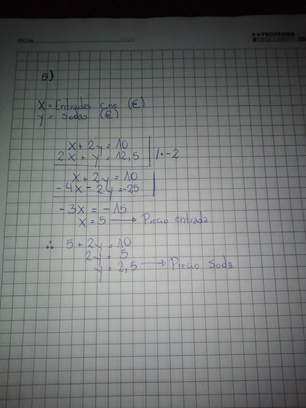 PROGRAMA
5)
X = Entradas cine (€)
y = Sodas (€)
X + 2y = 10
2X + y = 12,5 | / · -2
X + 2y = 10
- 4X - 2y = -25
- 3X = - 15
X = 5 → Precio entrada
∴ 5 + 2y = 10
2y = 5
y = 2,5 → Precio Soda